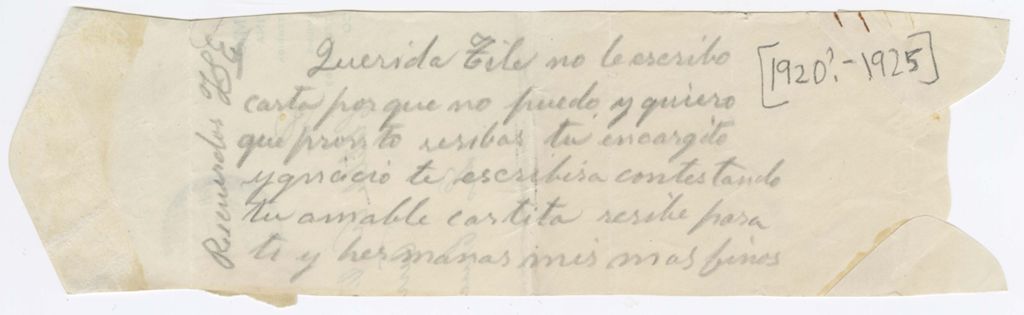 Querida Tile no le escribo
carta por que no puedo y quiero
que pronto resibas tu encargito
ygnacio te escribira contestando
tu amable cartita resibe para
ti y hermanas mis mas finos
Recuerdos
[1920?-1925]